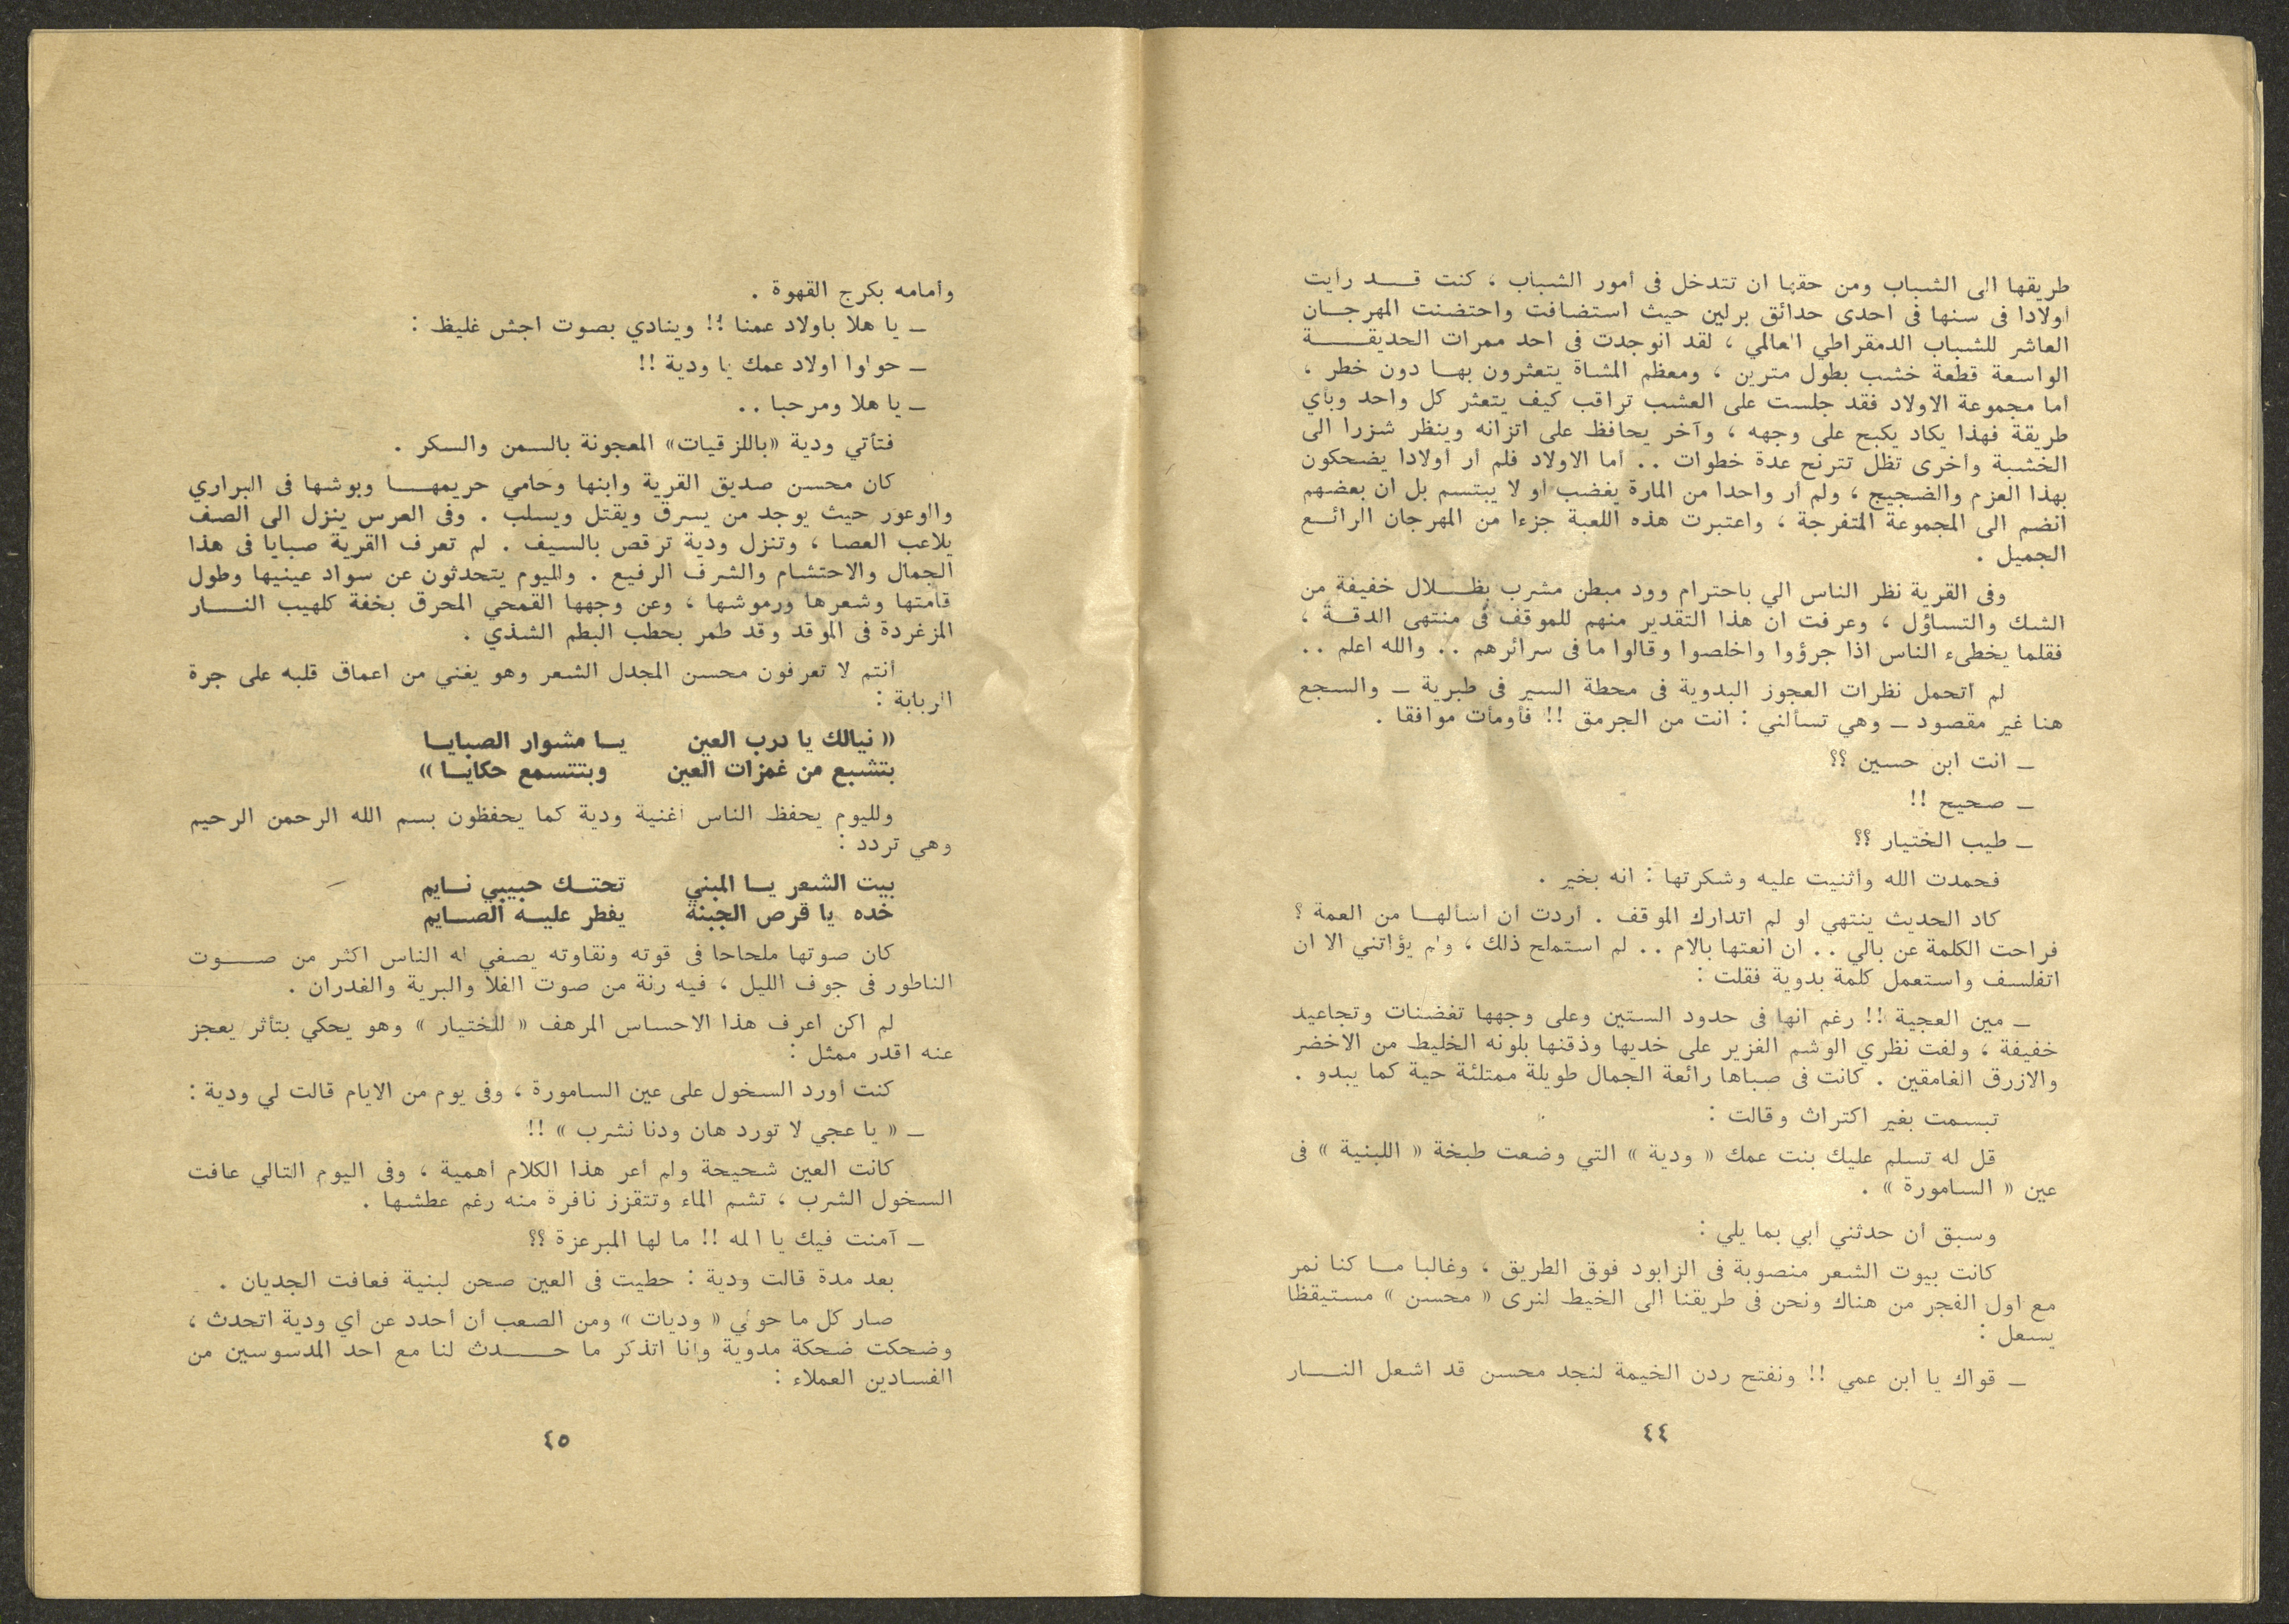 طريقها الى الشباب ومن حقها ان تتدخل فى أمور الشباب ، كنت قد رأيت
اولادا فى سنها فى احدى حدائق برلين حيث استضافت واحتضنت المهرجان
العاشر للشباب الدمقراطي العالمي ، لقد انوجدت فى احد ممرات الحديقة
الواسعة قطعة خشب بطول مترين ، ومعظم المشاة يتعثرون بها دون خطر ،
أما مجموعة الاولاد فقد جلست على العشب تراقب كيف يتعثر كل واحد وبأي
طريقة فهذا يكاد يكبح على وجهه ، وآخر يحافظ على اتزانه وينظر شزرا الى
الخشبة وأخرى تظل تترنح عدة خطوات .. أما الاولاد فلم أر أولادا يضحكون
بهذا العزم والضجيج ، ولم أر واحدا من المارة يغضب أو لا يبتسم بل ان بعضهم
انضم الى المجموعة المتفرجة ، واعتبرت هذه اللعبة جزءا من المهرجان الرائع
الجميل .
وفى القرية نظر الناس الي باحترام وود مبطن مشرب بظلال خفيفة من
الشك والتساؤل ، وعرفت ان هذا التقدير منهم للموقف فى منتهى الدقة ،
فقلما يخطىء الناس اذا جرؤوا واخلصوا وقالوا ما فى سرائرهم .. والله اعلم ..
لم أتحمل نظرات العجوز البدوية فى محطة السير فى طبرية ـ والسجع
هنا غير مقصود ـ وهي تسألني : انت من الجرمق !! فأومأت موافقا .
ـ انت ابن حسين ؟؟
ـ صحيح !!
ـ طيب الختيار ؟؟
فحمدت الله وأثنيت عليه وشكرتها : انه بخير .
كاد الحديث ينتهي او لم اتدارك الموقف . أردت أن أسألها من العمة ؟
فراحت الكلمة عن بالي .. ان انعتها بالام .. لم استملح ذلك ، ولم يؤاتني الا ان
اتفلسف واستعمل كلمة بدوية فقلت :
ـ مين العجية !! رغم انها فى حدود الستين وعلى وجهها تغضنات وتجاعيد
خفيفة ، ولفت نظري الوشم الغزير على خديها وذقنها بلونه الخليط من الاخضر
والازرق الغامقين . كانت فى صباها رائعة الجمال طويلة ممتلئة حية كما يبدو .
تبسمت بغير اكتراث وقالت :
قل له تسلم عليك بنت عمك « ودية » التي وضعت طبخة « اللبنية » فى
عين « السامورة » .
وسبق أن حدثني أبي بما يلي :
كانت بيوت الشعر منصوبة فى الزابود فوق الطريق ، وغالبا ما كنا نمر
مع اول الفجر من هناك ونحن فى طريقنا الى الخيط لنرى « محسن » مستيقظا
يسعل :
ـ قواك يا ابن عمي !! ونفتح ردن الخيمة لنجد محسن قد اشعل النار
٤٤
وأمامه بكرج القهوة .
ـ يا هلا باولاد عمنا !! وينادي بصوت اجش غليظ :
ـ حولوا اولاد عمك يا ودية !!
ـ يا هلا ومرحبا ..
فتأتي ودية «باللزقيات» المعجونة بالسمن والسكر .
كان محسن صديق القرية وابنها وحامي حريمها وبوشها فى البراري
والوعور حيث يوجد من يسرق ويقتل ويسلب . وفى العرس ينزل الى الصف
يلاعب العصا ، وتنزل ودية ترقص بالسيف . لم تعرف القرية صبايا فى هذا
الجمال والاحتشام والشرف الرفيع . ولليوم يتحدثون عن سواد عينيها وطول
قامتها وشعرها ورموشها ، وعن وجهها القمحي المحرق بخفة كلهيب النار
المزغردة فى الموقد وقد طمر بحطب البطم الشذي .
أنتم لا تعرفون محسن المجدل الشعر وهو يغني من اعماق قلبه على جرة
الربابة :
« نيالك يا درب العين يا مشوار الصبايا
بتشبع من غمزات العين وبتتسمع حكايا »
ولليوم يحفظ الناس اغنية ودية كما يحفظون بسم الله الرحمن الرحيم
وهي تردد :
بيت الشعر يا المبني تحتك حبيبي نايم
خده يا قرص الجبنة يفطر عليه الصايم
كان صوتها ملحاحا فى قوته ونقاوته يصغي له الناس اكثر من صوت
الناطور فى جوف الليل ، فيه رنة من صوت الفلا والبرية والغدران .
لم اكن اعرف هذا الاحساس المرهف « للختيار » وهو يحكي بتأثر يعجز
عنه اقدر ممثل :
كنت أورد السخول على عين السامورة ، وفى يوم من الايام قالت لي ودية :
ـ « يا عجي لا تورد هان ودنا نشرب » !!
كانت العين شحيحة ولم أعر هذا الكلام أهمية ، وفى اليوم التالي عافت
السخول الشرب ، تشم الماء وتتقزز نافرة منه رغم عطشها .
ـ آمنت فيك يا الله !! ما لها المبرعزة ؟؟
بعد مدة قالت ودية : حطيت فى العين صحن لبنية فعافت الجديان .
صار كل ما حولي « وديات » ومن الصعب أن أحدد عن أي ودية اتحدث ،
وضحكت ضحكة مدوية وانا اتذكر ما حدث لنا مع احد المدسوسين من
الفسادين العملاء :
٤٥